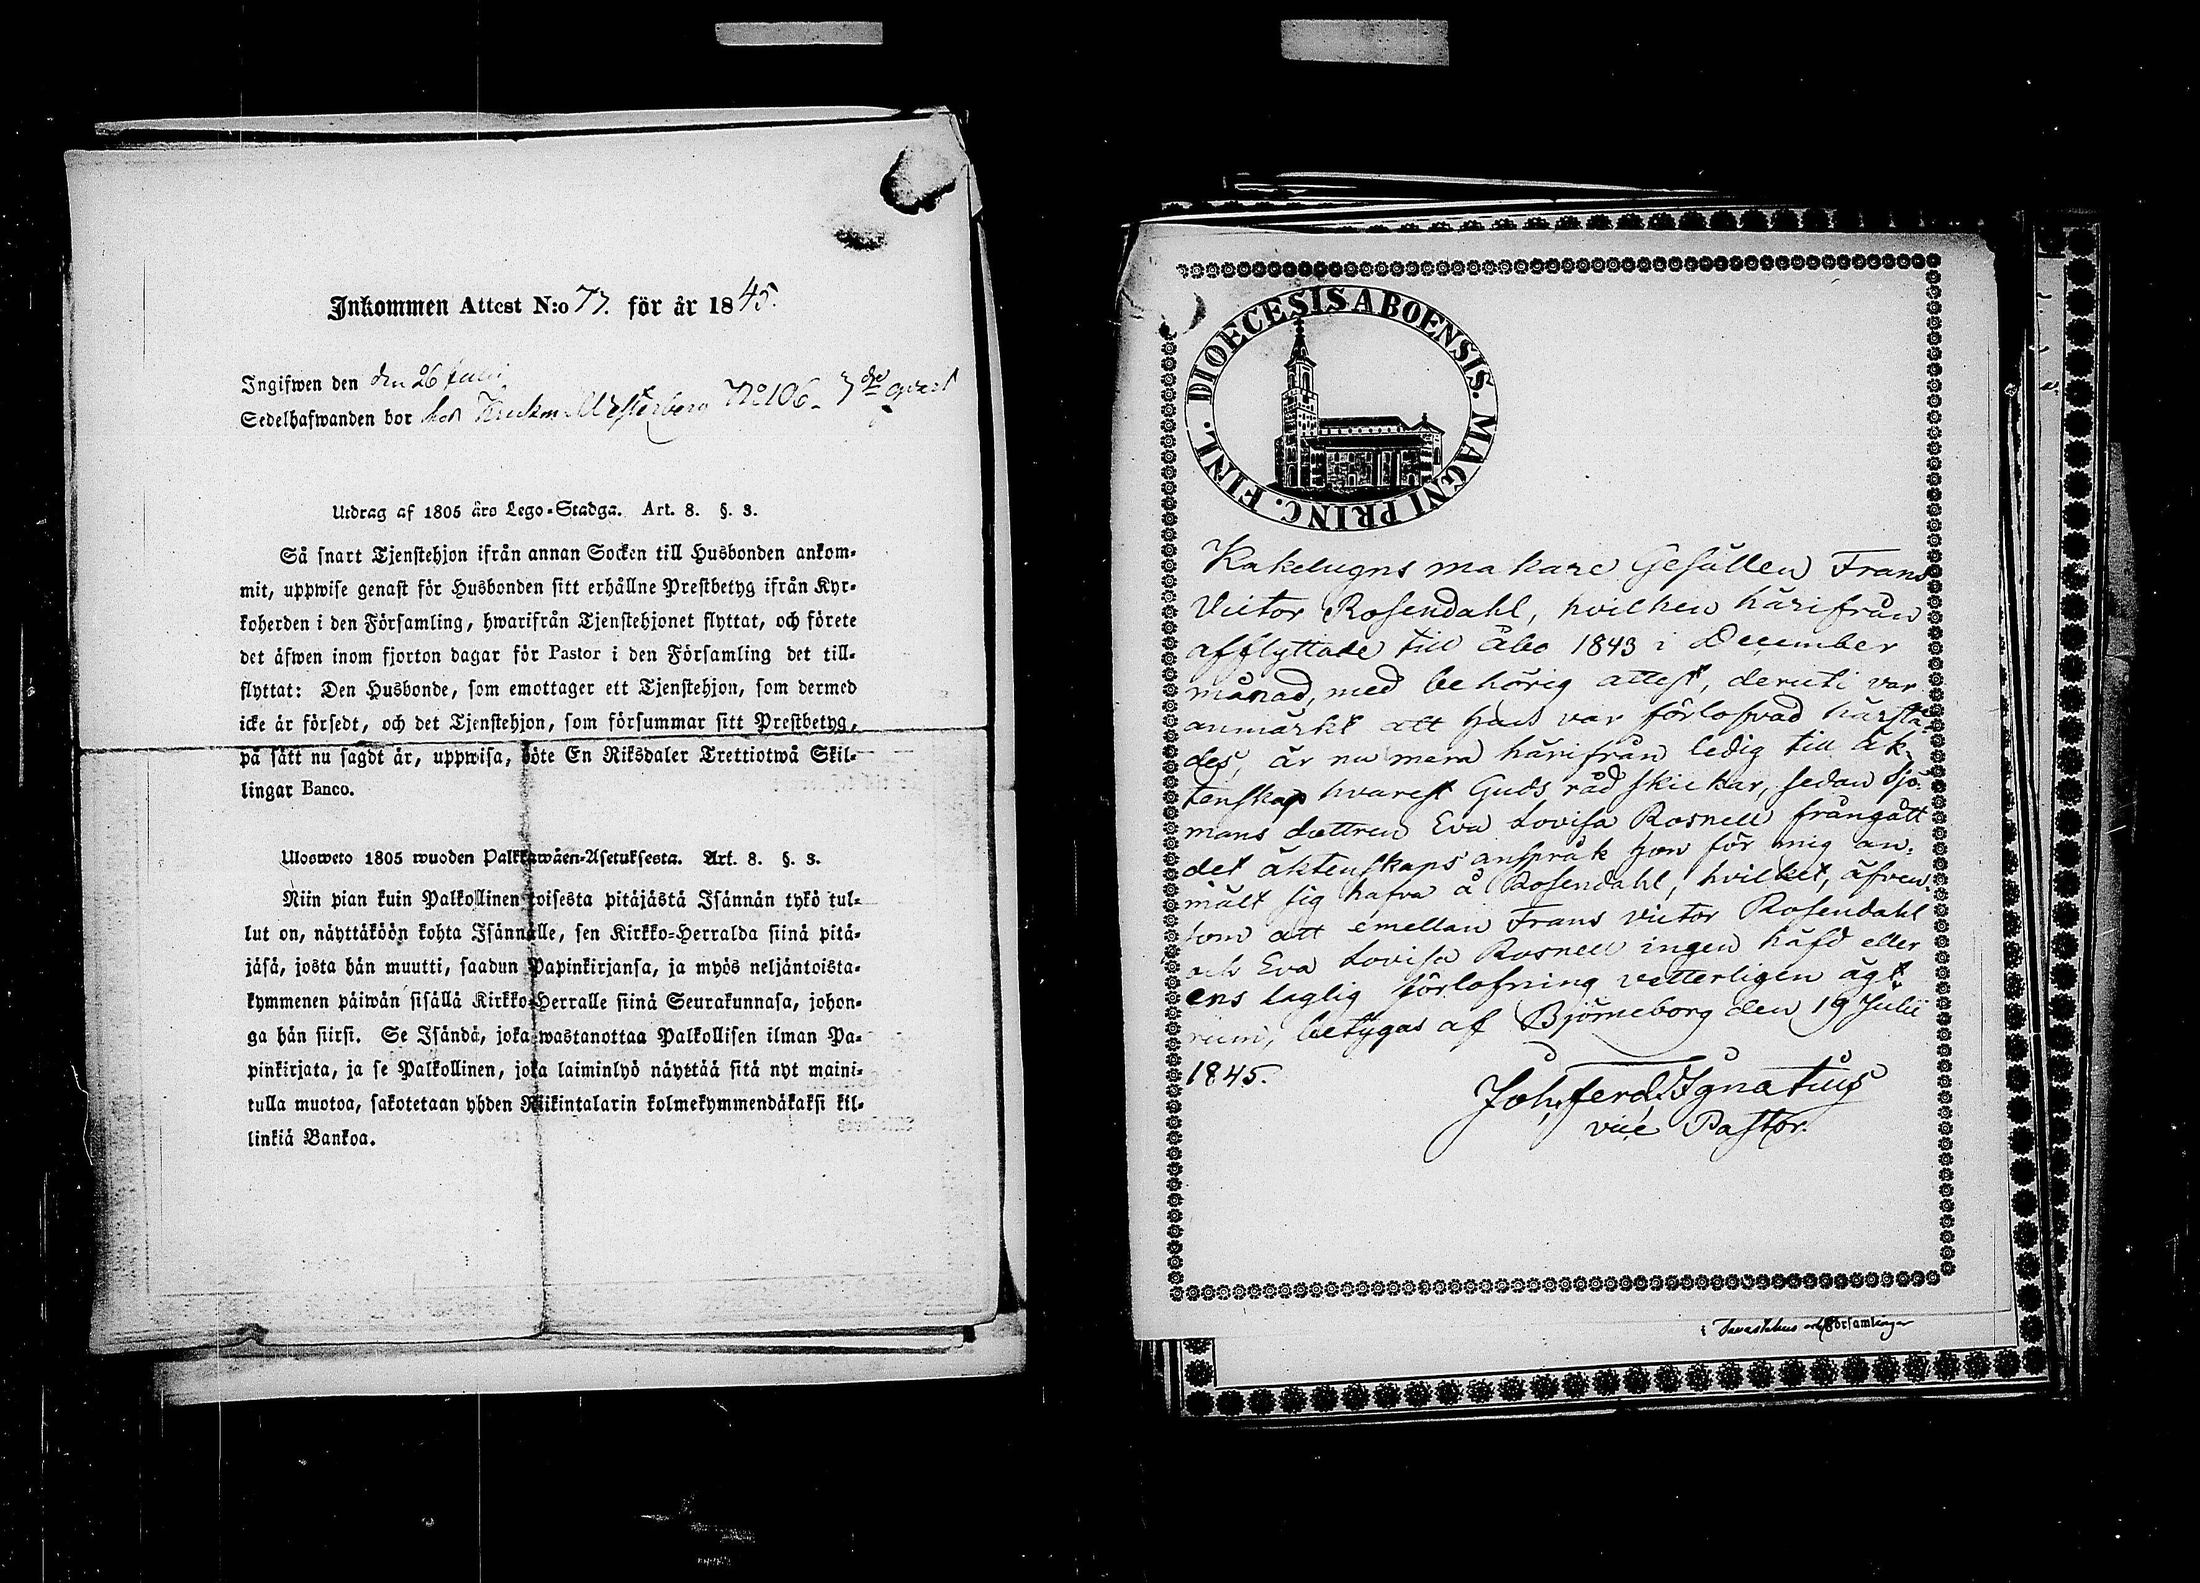 Inkommen Attest N:o 77. för år 1845.
Ingifwen den den 26 Julii
Sedelhafwanden bor hos Westerberg No 106 3dje qvart
Utdrag af 1805 års Lego-Stadga. Art. 8. §. 3.
Så snart Tjenstehjon ifrån annan Socken till Husbonden ankom-
mit, uppwise genast för Husbonden sitt erhållne Prestbetyg ifrån Kyr-
koherden i den Församling, hwarifrån Tjenstehjonet flyttat, och förete
det äfwen inom fjorton dagar för Pastor i den Församling det till-
flyttat: Den Husbonde, som emottager ett Tjenstehjon, som dermed
icke är försedt, och det Tjenstehjon, som försummar sitt Prestbetyg,
på sätt nu sagdt är, uppwisa, böte En Riksdaler Trettiotwå Skil-
lingar Banco.
Ulosweto 1805 wuoden Palkkawäen-Asetuksesta. Art. 8. §. 3.
Niin pian kuin Palkollinen toisesta pitäjästä Isännän tykö tul-
lut on, näyttäköön kohta Isännälle, sen Kirkko-Herralda siinä pitä-
jäsä, josta hän muutti, saadun Papinkirjansa, ja myös neljäntoista-
kymmenen päiwän sisällä Kirkko-Herralle siinä Seurakunnasa, johon-
ga hän siirsi. Se Isändä, joka wastanottaa Palkollisen ilman Pa-
pinkirjata, ja se Palkollinen, joka laiminlyö näyttää sitä nyt maini-
tulla muotoa, sakotetaan yhden Riikintalarin kolmekymmendäkaksi kil-
linkiä Bankoa.
DIOECESIS ABOENSIS. MAGNI PRINC. FINL.
Kakelugnsmakare Gesällen Frans
Victor Rosendahl, hvilken härifrån
afflyttade till Åbo 1843 i December
månad, med behörig attest, deruti var
anmärkt att han var förlofvad härstä-
des, är nu mera härifrån ledig till äk-
tenskap hvarest Guds råd skickar, sedan Sjö-
mans dottren Eva Lovisa Rosnell frångått
det äktenskaps anspråk hon för mig an-
mält sig hafva å Rosendahl, hvilket, äfven-
som att emellan Frans Victor Rosendahl
och Eva Lovisa Rosnell ingen häfd eller
ens laglig förlofning vetterligen ägt
rum, betygas af Björneborg den 19 Julii
1845.
Joh. Ferd. Ignatius
vice Pastor.
i Tavastehus och Församlingar